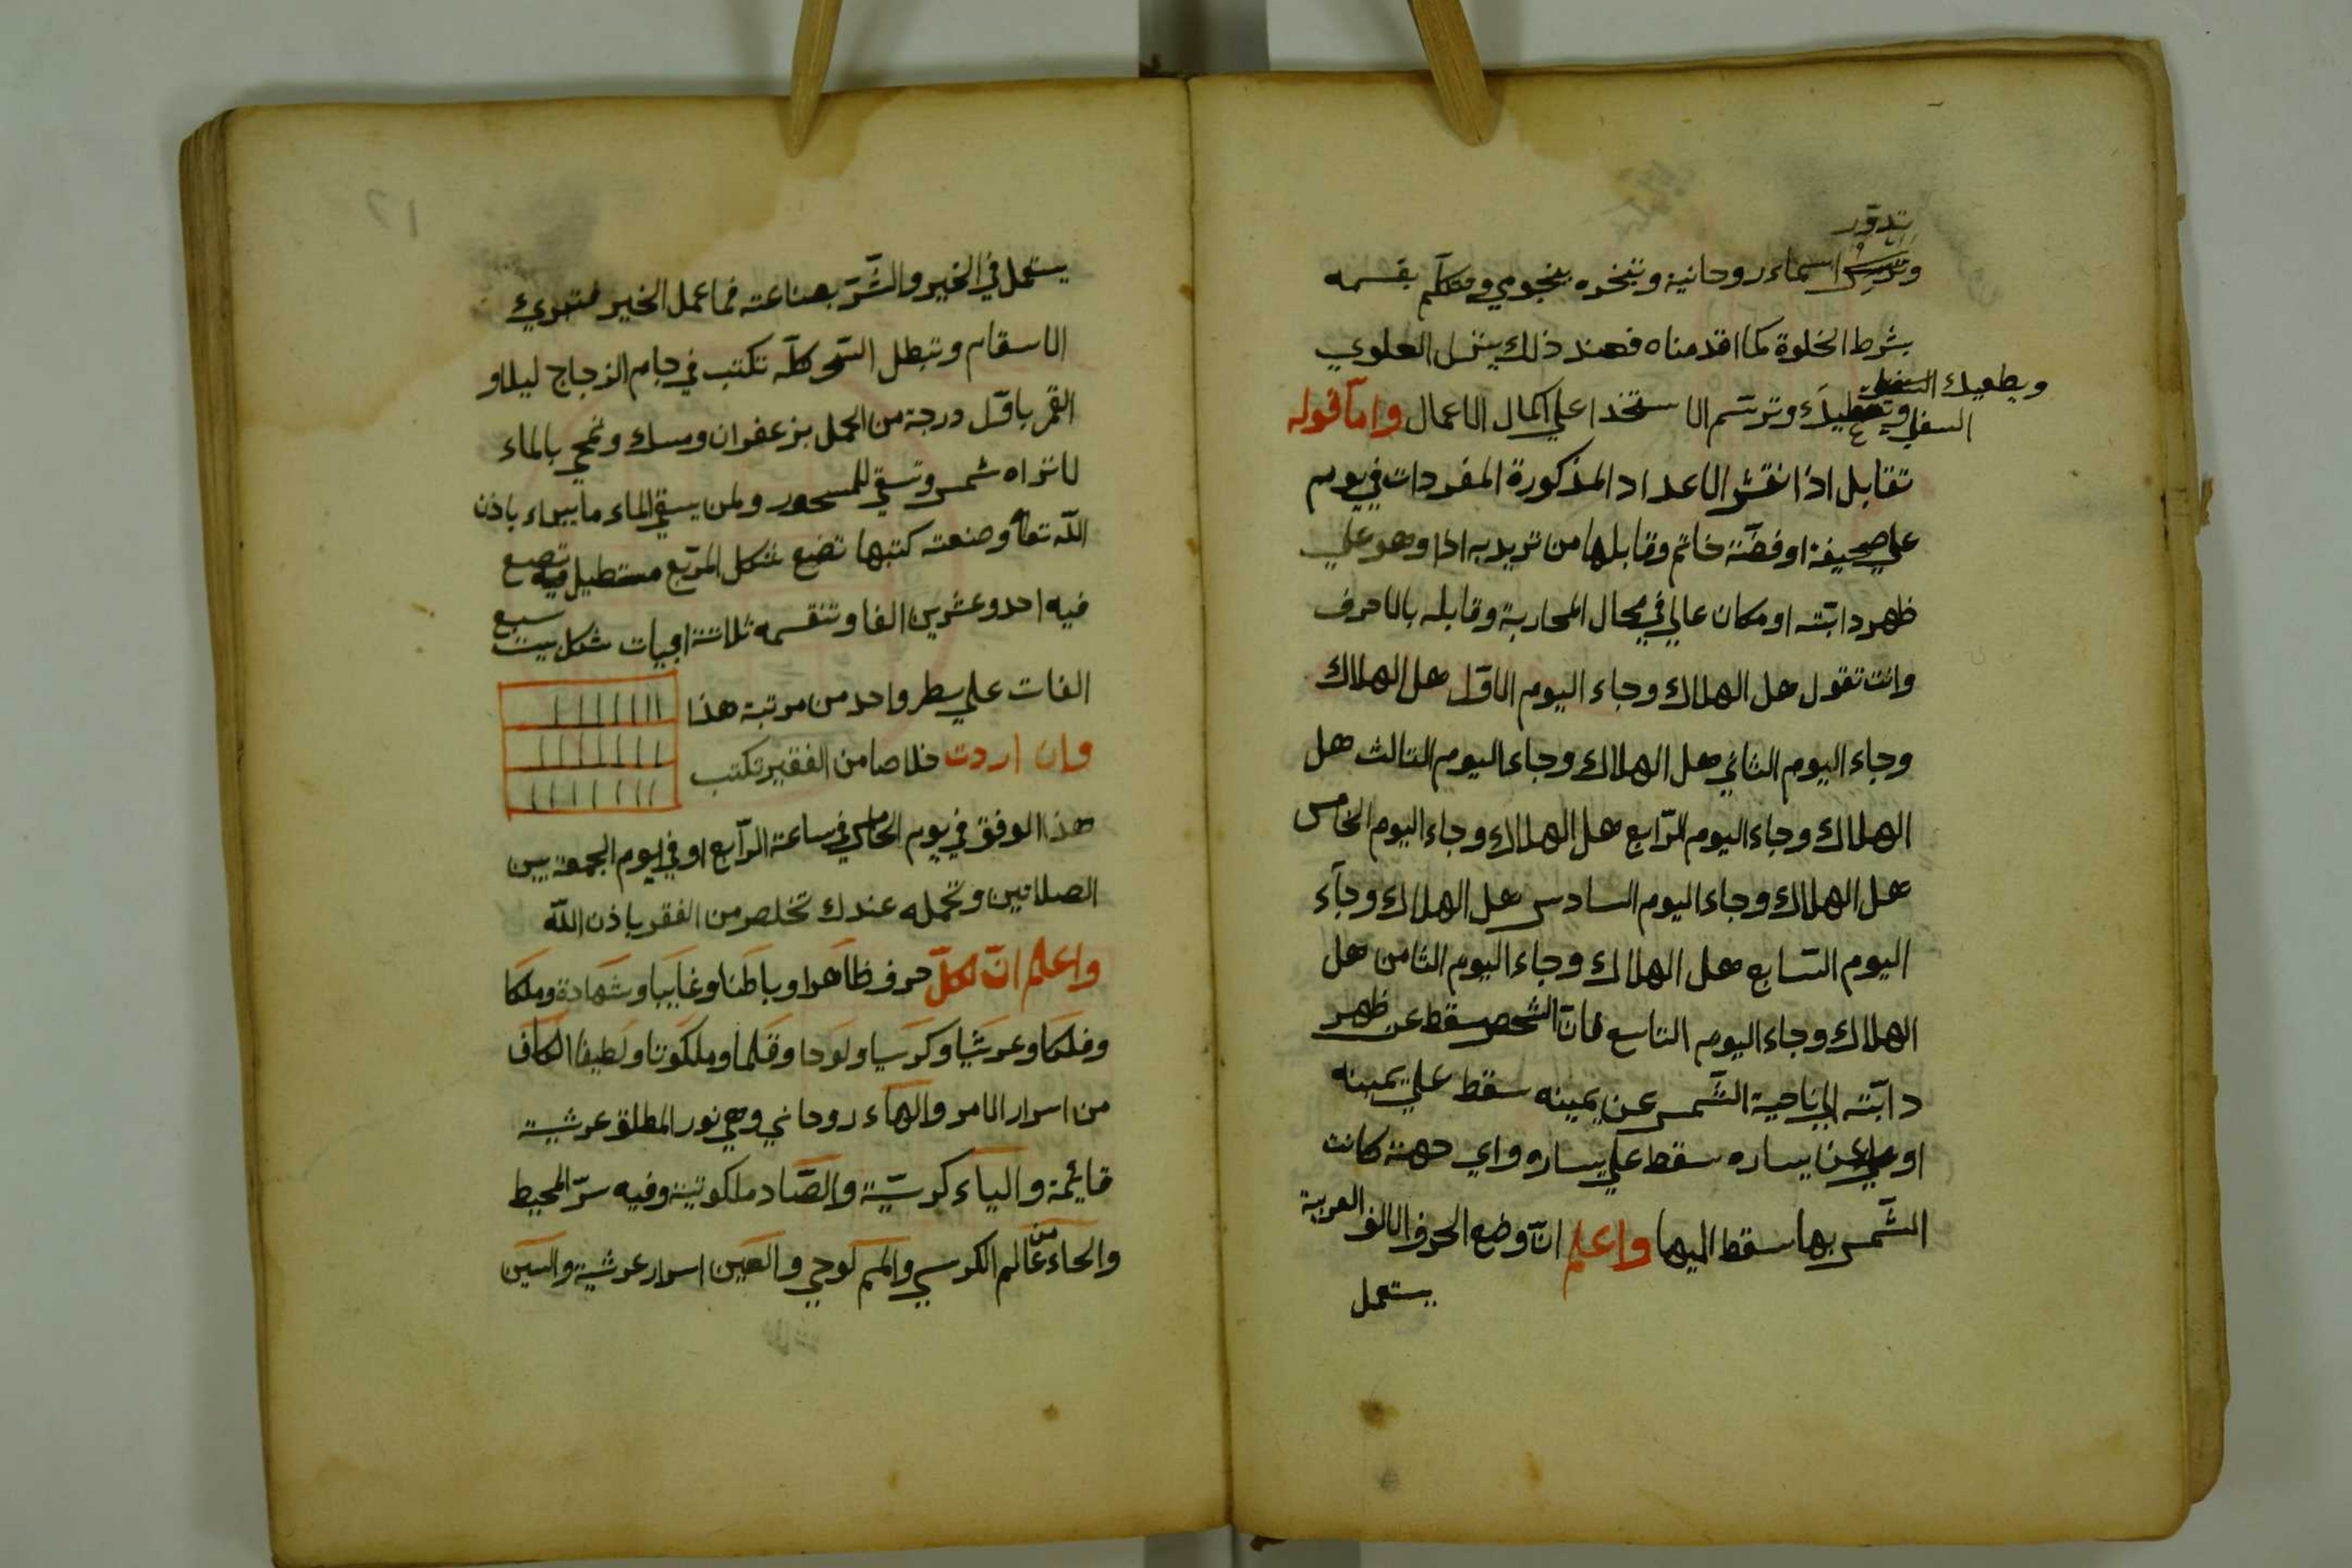 تدور
اسماء روحانية وتبخره بنجومي ومتكلم بقسمه
بشرط الخلوة كما اقدمناه فعند ذلك ينزل العلوي
ويطعيك السفلي
السفلي وترتسم الاستخدا علي اكمال الاعمال واما قوله
تقابل اذا نقش الاعداد المذكورة المفردات في يوم
علي صحيفة او فضة خاتم وقابلها من تريد به اذا وهو علي
ظهر دابته او مكان عالي في مجال المحاربة وقابله بالاحرف
وانت تقول هل الهلاك وجاء اليوم الاول هل الهلاك
وجاء اليوم الثاني هل الهلاك وجاء اليوم الثالث هل
الهلاك وجاء اليوم الرابع هل الهلاك وجاء اليوم الخامس
هل الهلاك وجاء اليوم السادس هل الهلاك وجآء
اليوم السابع هل الهلاك وجاء اليوم الثامن هل
الهلاك وجاء اليوم التاسع فان الشخص سقط عن ظهر
دابته الي ناحية الشمس عن يمينه سقط علي يمينه
او عن يساره سقط علي يساره واي جهة كانت
الشمس بها سقط اليها واعلم ان وضع الحرف الالف العربية
يستعمل
١٢
يستعمل في الخير والشر بصناعته فما عمل الخير فتبري
الاسقام وتبطل السحر كله تكتب في جام الزجاج ليلا و
القمر باول درجة من الحمل بزعفران ومسك وتمحي بالماء
لا تراه شمس وتسقي للمسحور ولمن يسقي الماء ما يبراء باذن
الله تعا وصنعته كتبها تضع شكل المربع مستطيل فيه تضع
فيه احد وعشرين الفا وتنقسمه ثلاثة ابيات شكل بيت سبع
الفات علي سطر واحد من مرتبة هذا
١١١١١١١
١١١١١١١
١١١١١١١
وان اردت خلاصا من الفقير تكتب
هذا الوفق في يوم الخامس في ساعة الرابع او في يوم الجمعة بين
الصلاتين وتحمله عندك تخلص من الفقر باذن الله
واعلم ان لكل حرف ظاهرا وباطنا وغايبا وشهادة وملكا
وفلكا وعرشيا وكرسيا ولوحا وقلما وملكوتا ولطيفا الكاف
من اسرار الامر والهآء روحاني وهي نور المطلق عرشية
قايمة والياء كرسية والصاد ملكوتية وفيه سر المحيط
والحاء من عالم الكرسي والميم لوحي والعين اسرار عرشية والسين